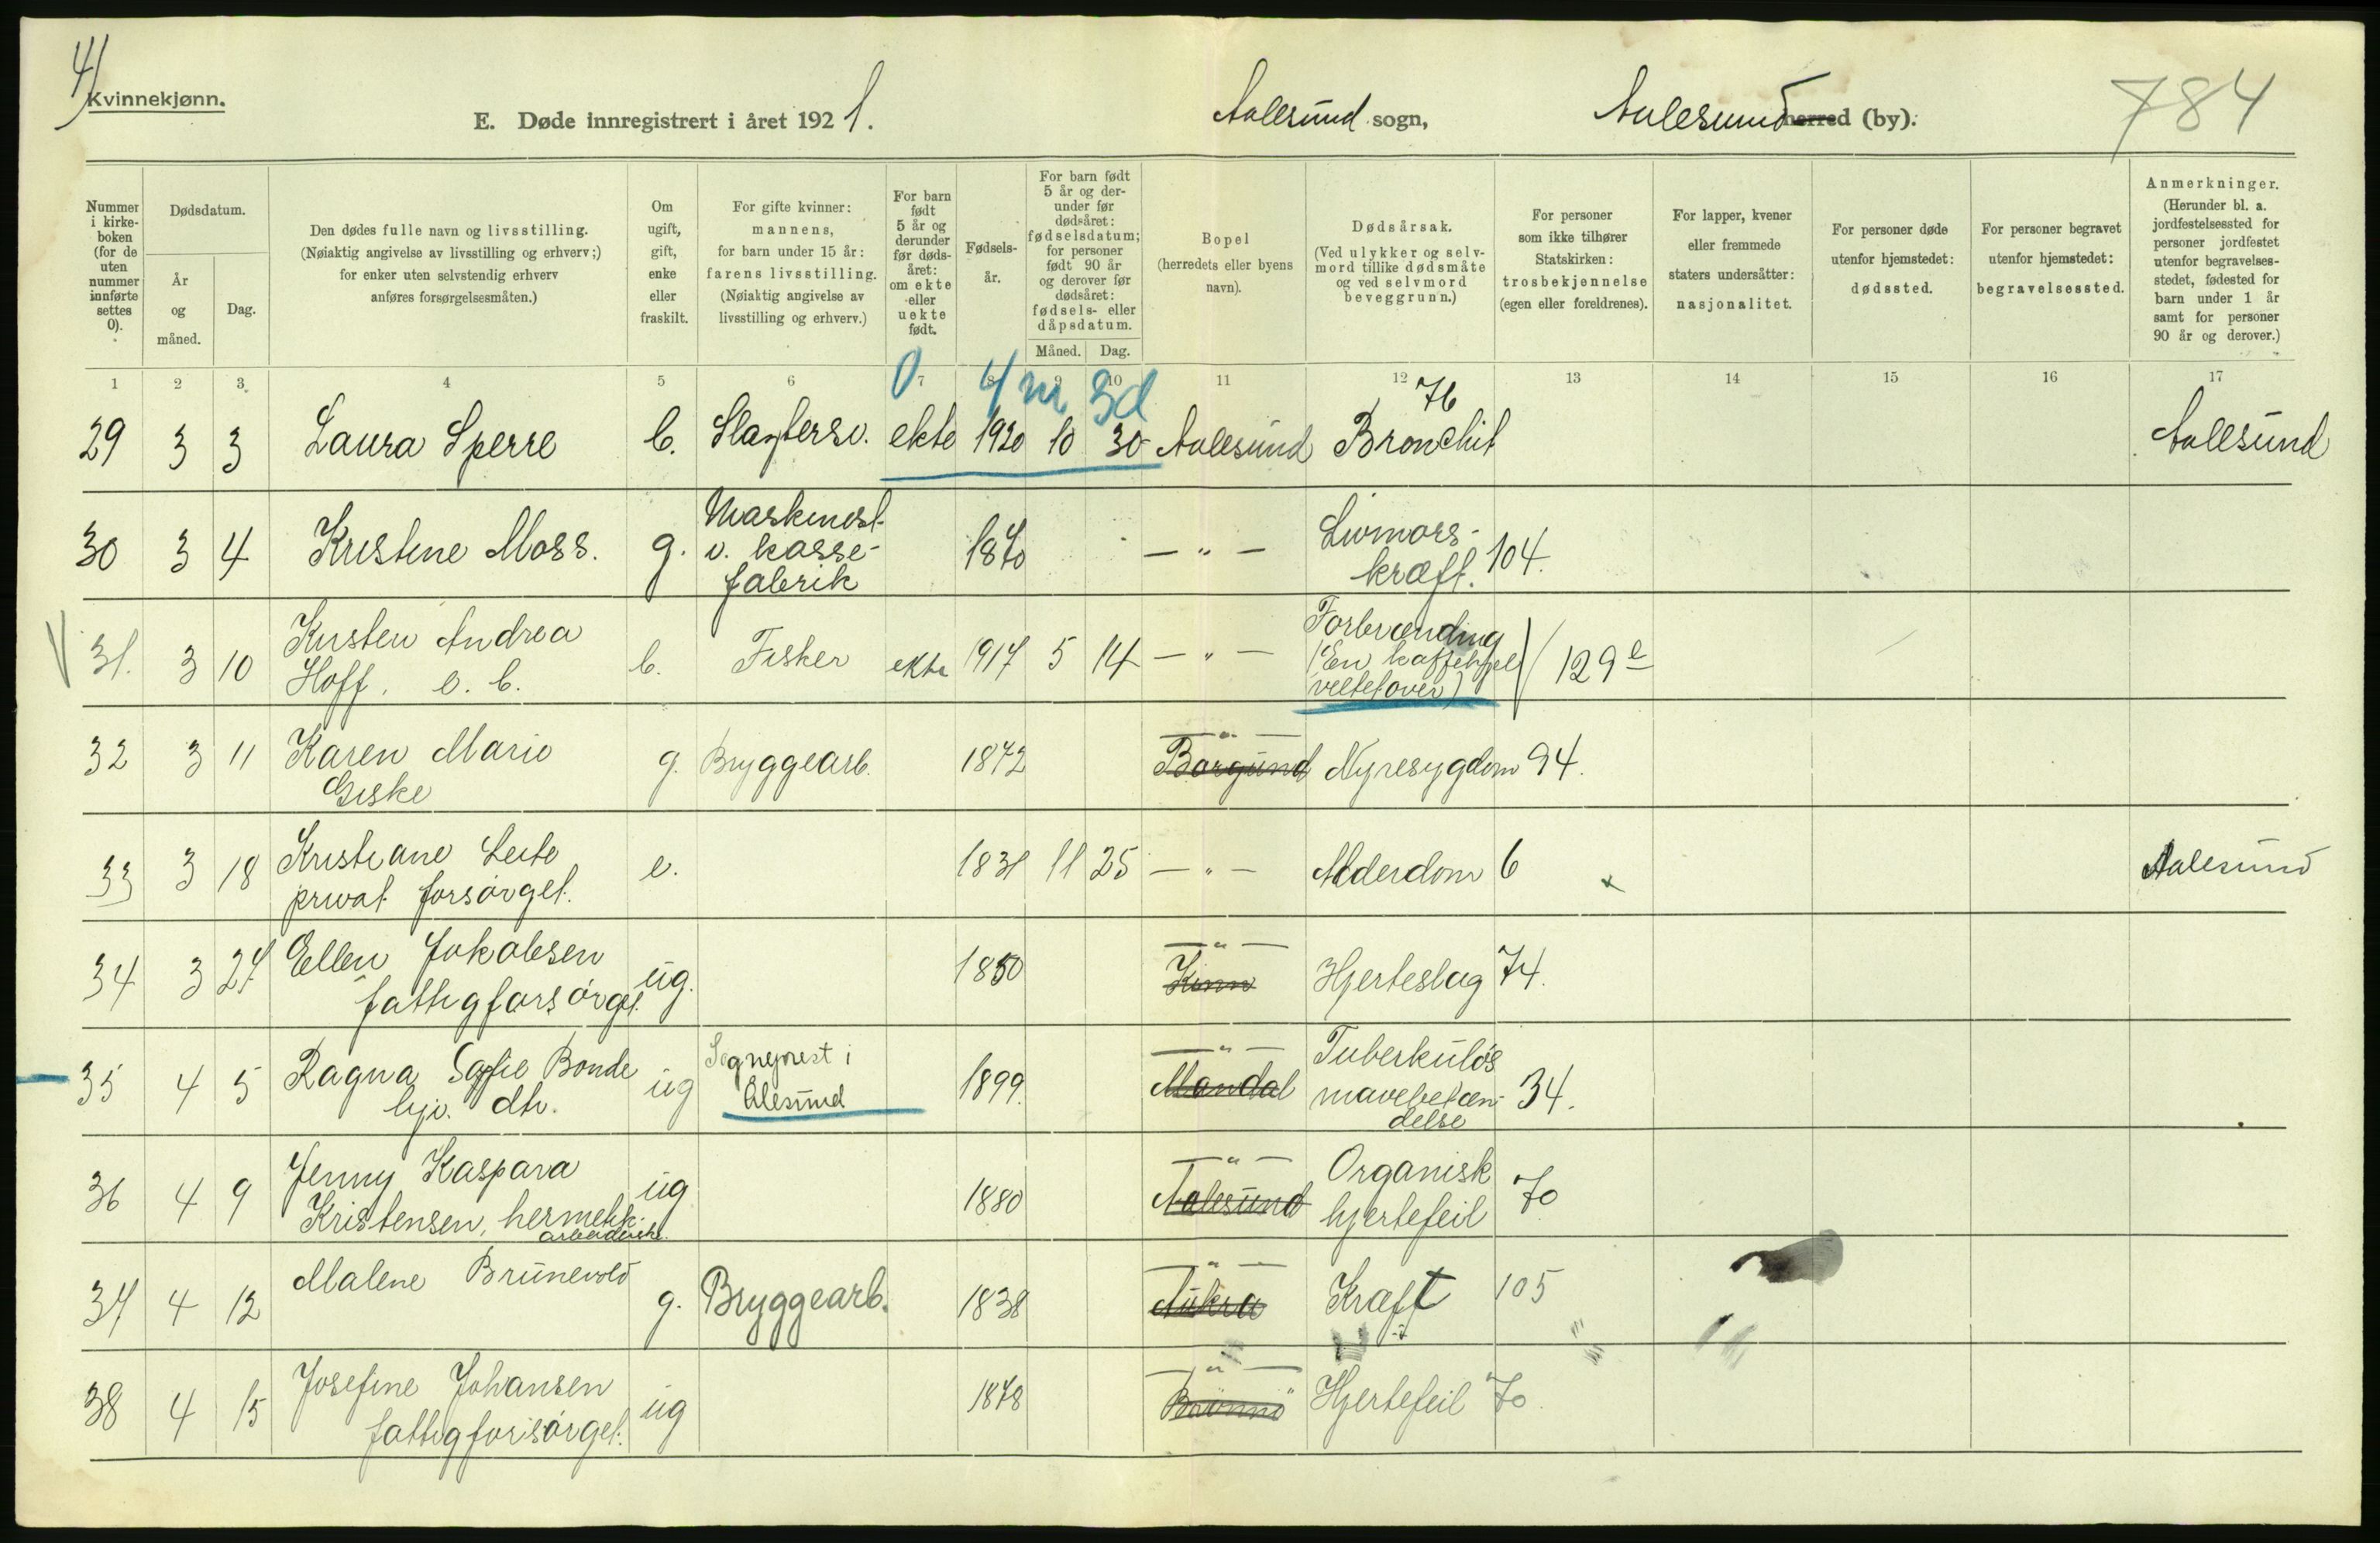 4)
Kvinnekjønn.
E. Døde innregistrert i året 1921.
Aalesund sogn,
Aalesund herred (by).
784
Nummer i kirkeboken (for de uten nummer innførte settes 0).
Dødsdatum.
År og måned.
Dag.
Den dødes fulle navn og livsstilling.
(Nøiaktig angivelse av livsstilling og erhverv;)
for enker uten selvstendig erhverv
anføres forsørgelsesmåten.)
Om ugift, gift, enke eller fraskilt.
For gifte kvinner:
mannens,
for barn under 15 år:
farens livsstilling.
(Nøiaktig angivelse av
livsstilling og erhverv.)
For barn født 5 år og derunder før dødsåret: om ekte eller uekte født.
Fødselsår.
For barn født 5 år og derunder før dødsåret: fødselsdatum; for personer født 90 år og derover før dødsåret: fødsels- eller dåpsdatum.
Måned. Dag.
Bopel
(herredets eller byens
navn).
Dødsårsak.
(Ved ulykker og selvmord tillike dødsmåte og ved selvmord beveggrunn.)
For personer
som ikke tilhører
Statskirken:
trosbekjennelse
(egen eller foreldrenes).
For lapper, kvener
eller fremmede
staters undersåtter:
nasjonalitet.
For personer døde
utenfor hjemstedet:
dødssted.
For personer begravet
utenfor hjemstedet:
begravelsessted.
Anmerkninger.
(Herunder bl. a.
jordfestelsessted for
personer jordfestet
utenfor begravelses-
stedet, fødested for
barn under 1 år
samt for personer
90 år og derover.)
1 2 3 4 5 6 7 8 9 10 11 12 13 14 15 16 17
0 4 m 3d
76
29 3 3 Laura Sperre b. Slagtersv. ekte 1920 10 30 Aalesund Bronchit Aalesund
30 3 4 Kristine Moss. g. Maskinist v. kassefabrik 1870 — " — Livmorskræft. 104.
31. 3 10 Kirsten Andrea Hoff. e. b. b. Fisker ekte 1917 5 14 — " — Forbrænding (En kaffekjel veltet over) 129 e
32 3 11 Karen Marie Giske g. Bryggearb. 1872 — " — Borgund Nyresygdom 94.
33 3 18 Kristiane Leite privat forsørget. e. 1831 11 25 — " — Alderdom 6 x Aalesund
34 3 27 Ellen Jakobsen fattigforsørget. ug. 1850 — " — Kinn Hjerteslag 74.
35 4 5 Ragna Sofie Bonde hjv. dtr. ug Sogneprest i Ålesund 1899. — " — Mandal Tuberkuløs mavebetændelse 34.
36 4 9 Jenny Kaspara Kristensen, hermetikkarbeiderske. ug 1880 — " — Aalesund Organisk hjertefeil 70
37 4 12 Malene Brunevold g. Bryggearb. 1838 — " — Aukra Kræft 105
38 4 15 Josefine Johansen fattigforsørget. ug 1878 — " — Hjertefeil 70.